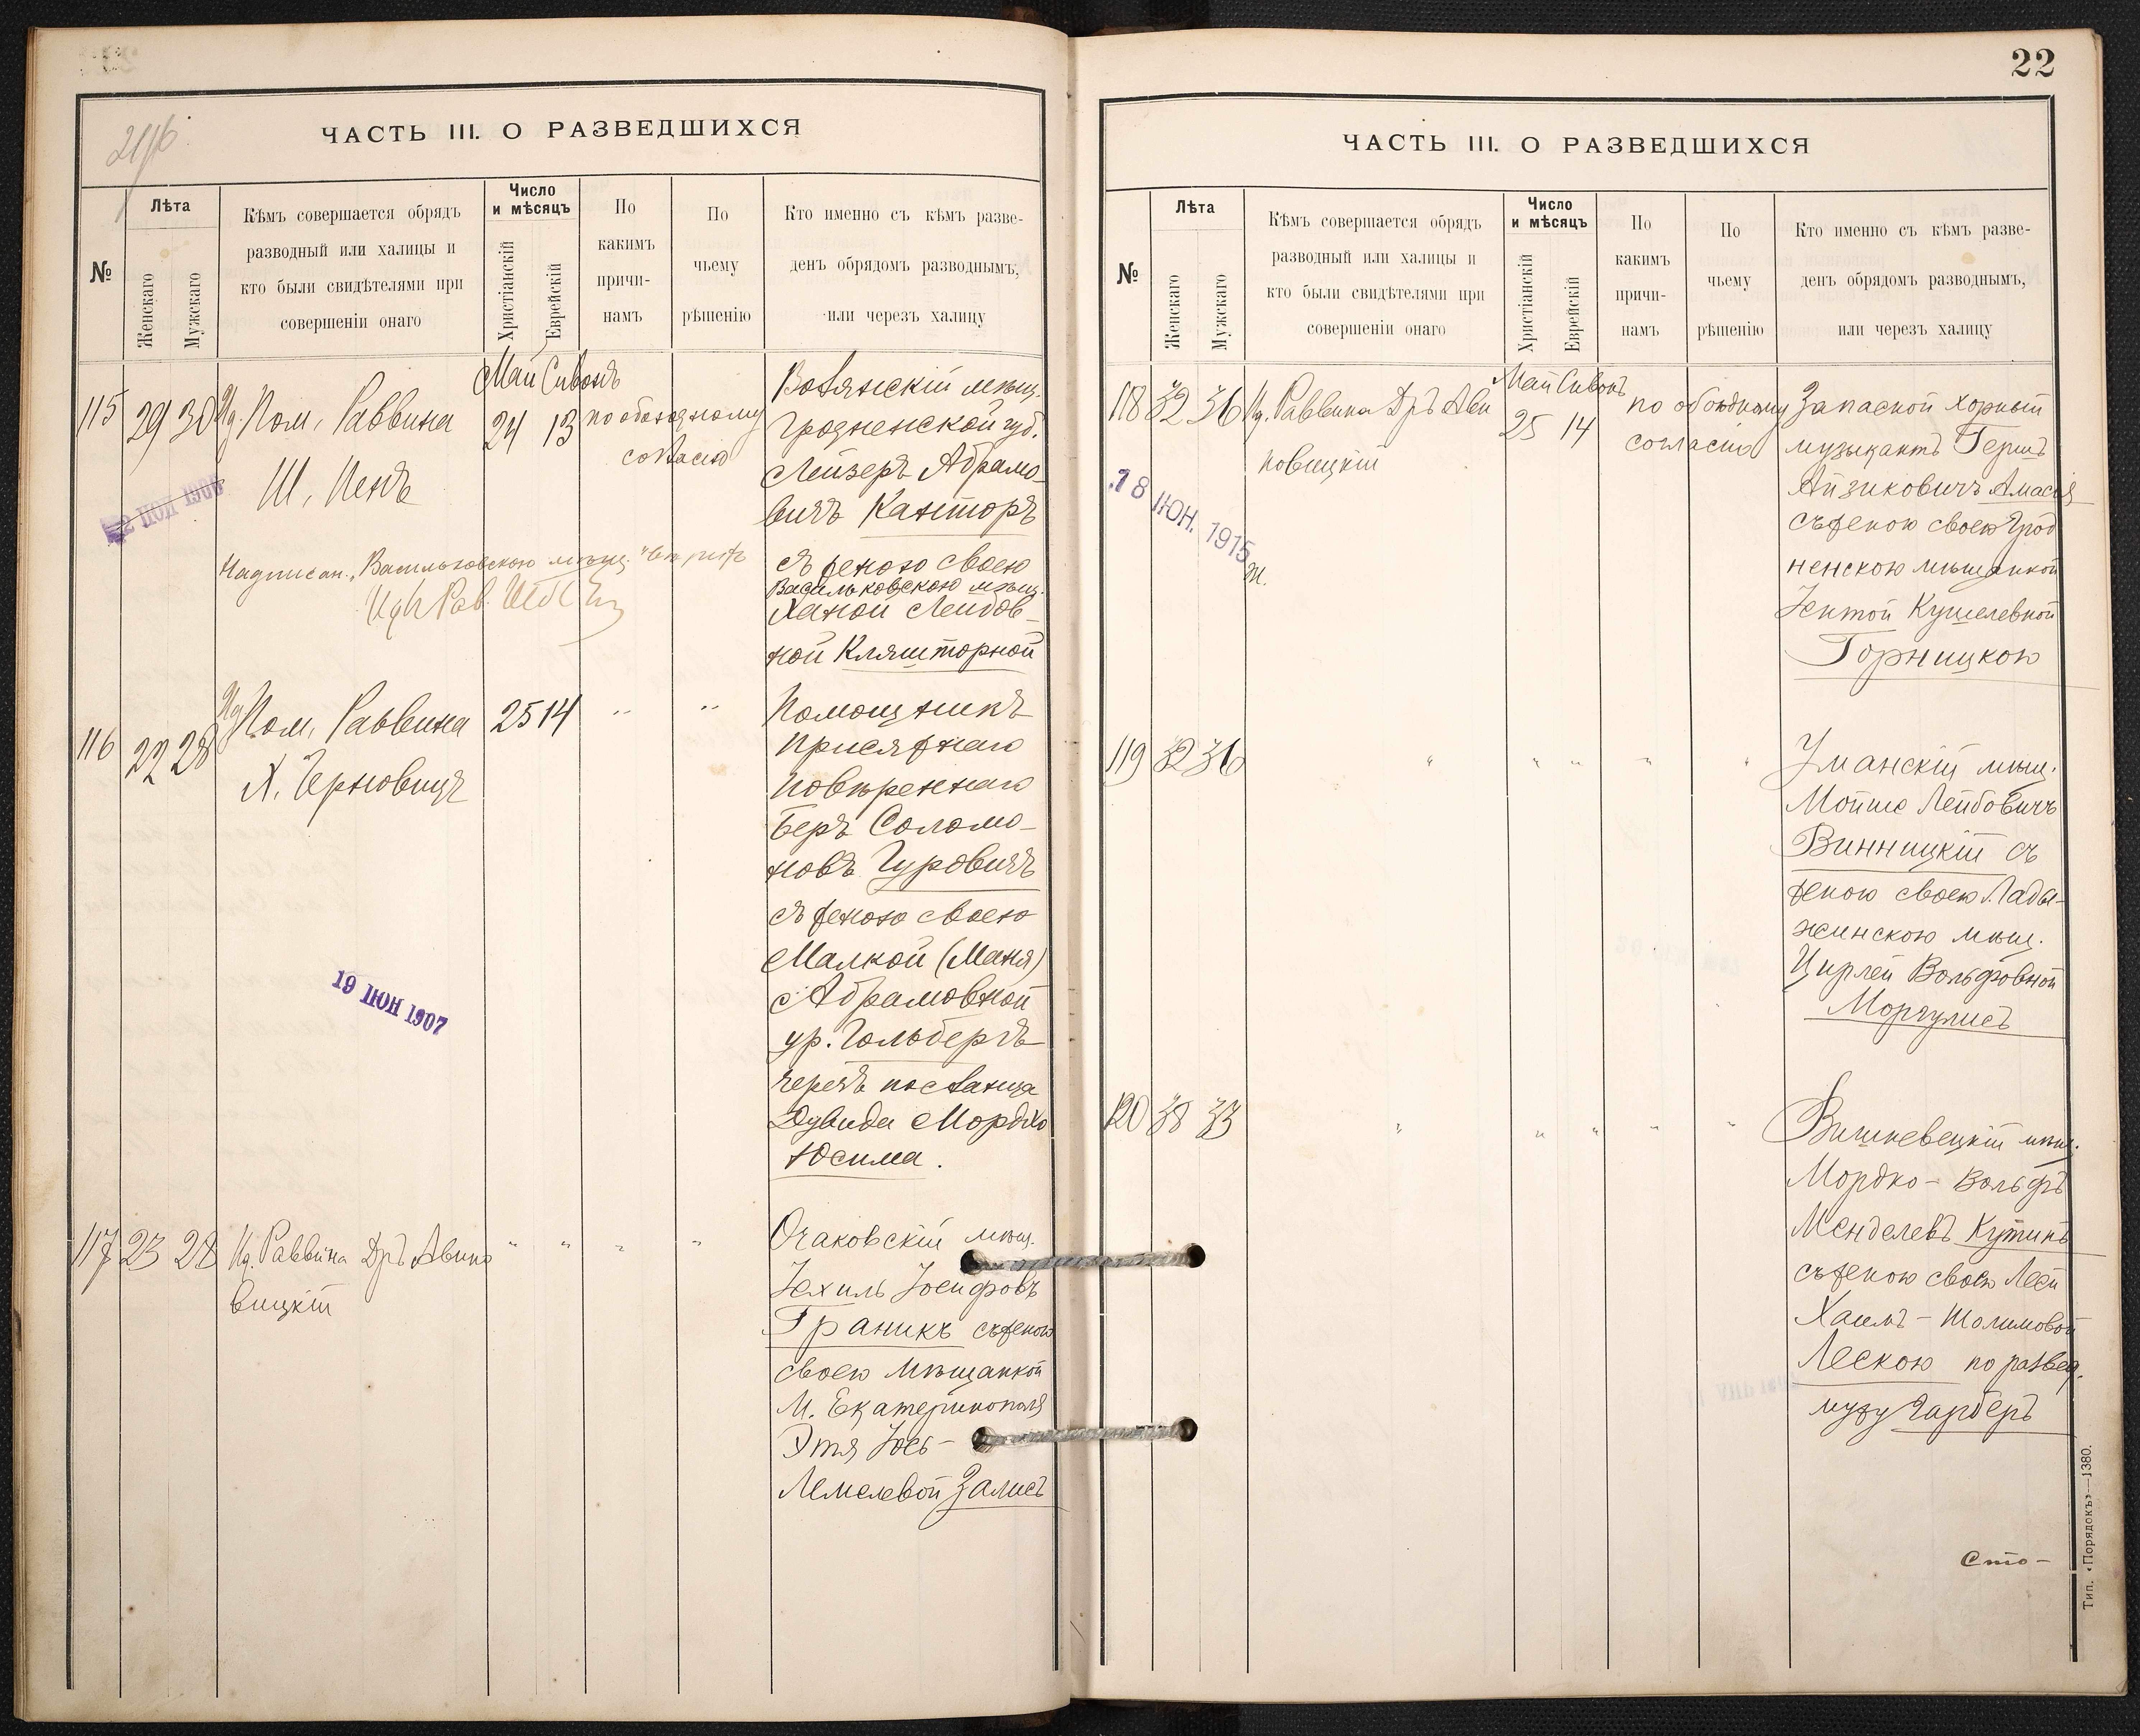 ЧАСТЬ III. О РАЗВЕДШИХСЯ
№
Лѣта
Женскаго
Мужскаго
Кѣмъ совершается обрядъ
разводный или халицы и
кто были свидѣтелями при
совершеніи онаго
Число
и мѣсяцъ
Христіанскій
Еврейскій
По
какимъ
причи-
намъ
По
чьему
рѣшенію
Кто именно съ кѣмъ разве-
денъ обрядомъ разводнымъ,
или черезъ халицу
Май Сивонъ
115 29 30
Пом. Раввина
Ш. Ненъ
24 13
по обоюдному
согласію
мѣщ.
Гродненской губ.
Лейзеръ Абрамо-
вичъ Канторъ
съ женою своею
Васильковскою мѣщ.
Ханой Лейбов-
ной Кляшторной
1908
Надписан. „Васильковскою мѣщ."
116 22 28
Пом. Раввина
Х. Черновицъ
25 14
" "
Помощникъ
присяжнаго
повѣреннаго
Беръ Соломо-
новъ Гуровичъ
съ женою своею
Малкой (Маня)
Абрамовной
ур. Гольдберъ
черезъ посланца
Дувида Мордко
Юсима.
19 ІЮН 1907
117 23 28
Ид. Раввина Дръ Авино
вицкій
" " " "
Очаковскій мѣщ.
Іехиль Іосифовъ
Граникъ съ женою
своею мѣщанкой
М. Екатеринополя
Этя Іось-
Лемелевой Залисъ
22
ЧАСТЬ III. О РАЗВЕДШИХСЯ
№
Лѣта
Женскаго
Мужскаго
Кѣмъ совершается обрядъ
разводный или халицы и
кто были свидѣтелями при
совершеніи онаго
Число
и мѣсяцъ
Христіанскій
Еврейскій
По
какимъ
причи-
намъ
По
чьему
рѣшенію
Кто именно съ кѣмъ разве-
денъ обрядомъ разводнымъ,
или черезъ халицу
Май Сивонъ
118 32 36
Ид. Раввина Дръ Ави
новицкій
25 14
по обоюдному
согласію
Запасной хорный
музыкантъ Гершъ
Айзиковичъ Амасія
съ женою своею Грод
ненскою мѣщанкой
Іентой Кушелевной
Горницкою
18 ІЮН. 1915
119 32 36
" " " " "
Уманскій мѣщ.
Мойше Лейбовичъ
Винницкій съ
женою своею Лады-
жинскою мѣщ.
Цирлей Вольфовной
Моргулисъ
120 38 33
" " " " "
Вишневецкій мѣщ.
Мордко-Вольфъ
Менделевъ Кутинъ
съ женою своею Леей
Хаимъ-Шолимовой
Лескою по развед.
мужу Гарберъ
Сто-
Тип. «Порядокъ»—1380.